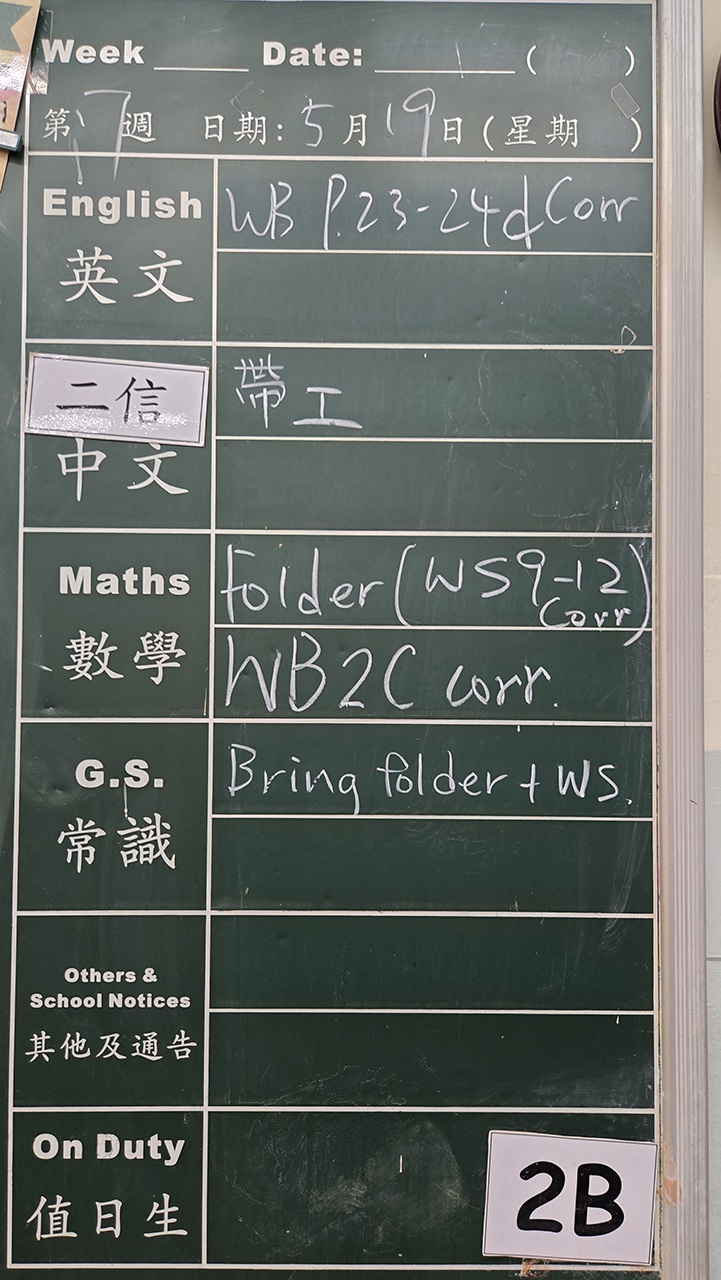 Week ____ Date: ______ ( )
第17週 日期:5月19日(星期 )
English WB P.23-24d Corr
英文
二信 帶工
中文
Maths Folder (WS9-12 Corr)
數學 WB2C corr.
G.S. Bring folder + WS.
常識
Others &
School Notices
其他及通告
On Duty
值日生
2B